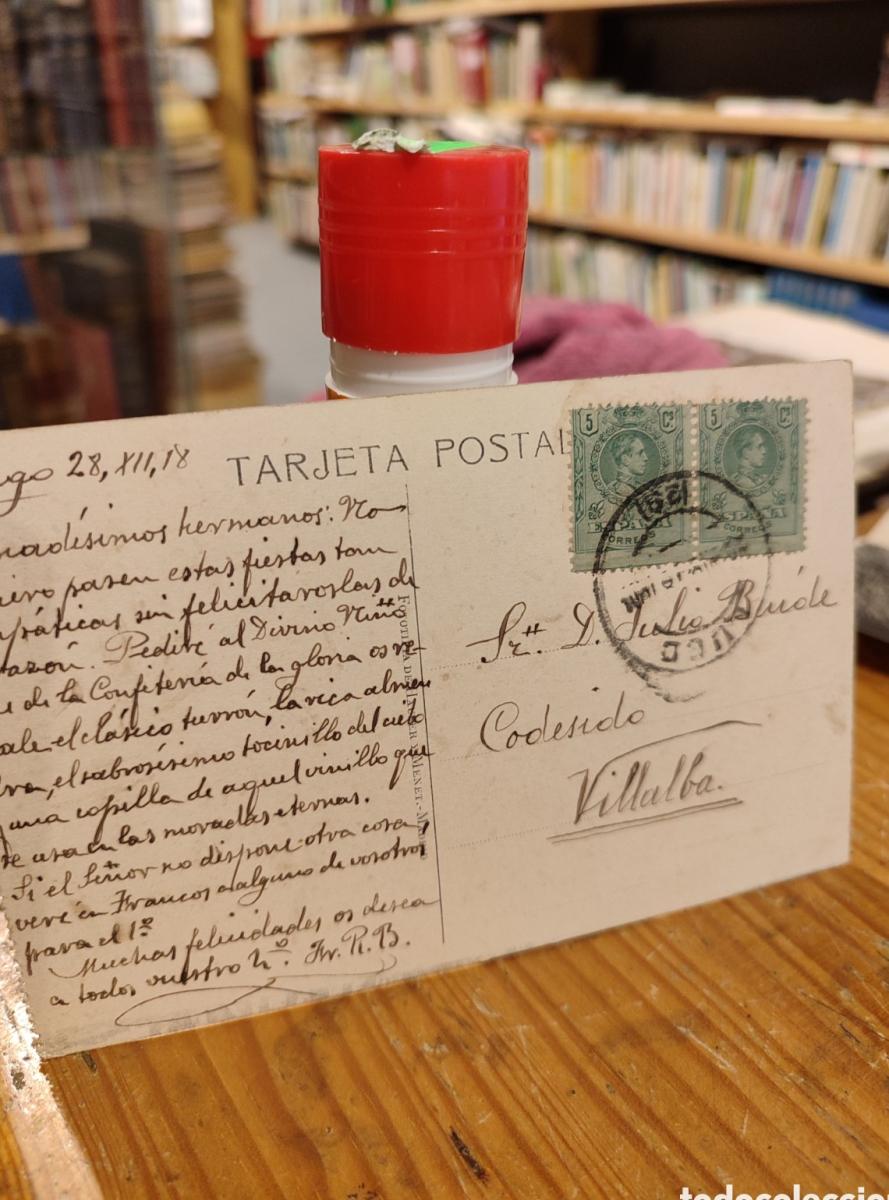 ugo 28, XII, 18
TARJETA POSTAL
madésimos hermanos: No
iero pasen estas fiestas tan
práticas sin felicitaroslas de
razón. Pediré al Divino Niño
e de la Confitería de la gloria os re-
ale el clásico turrón, la rica almen
dra, el sabrosísimo tocinillo del cielo
y una copilla de aquel vinillo que
se usa en las moradas eternas.
Si el Señor no dispone otra cosa,
veré en Francos a alguno de vosotros
para el 1º
Muchas felicidades os desea
a todos vuestro hº. Fr. R. B.
FOTOTIPIA DE HAUSER Y MENET.-MADRID
5 Cs
5 Cs
CORREOS
CORREOS
Sr. D. Julio
Codesido
Villalba.
todocoleccion